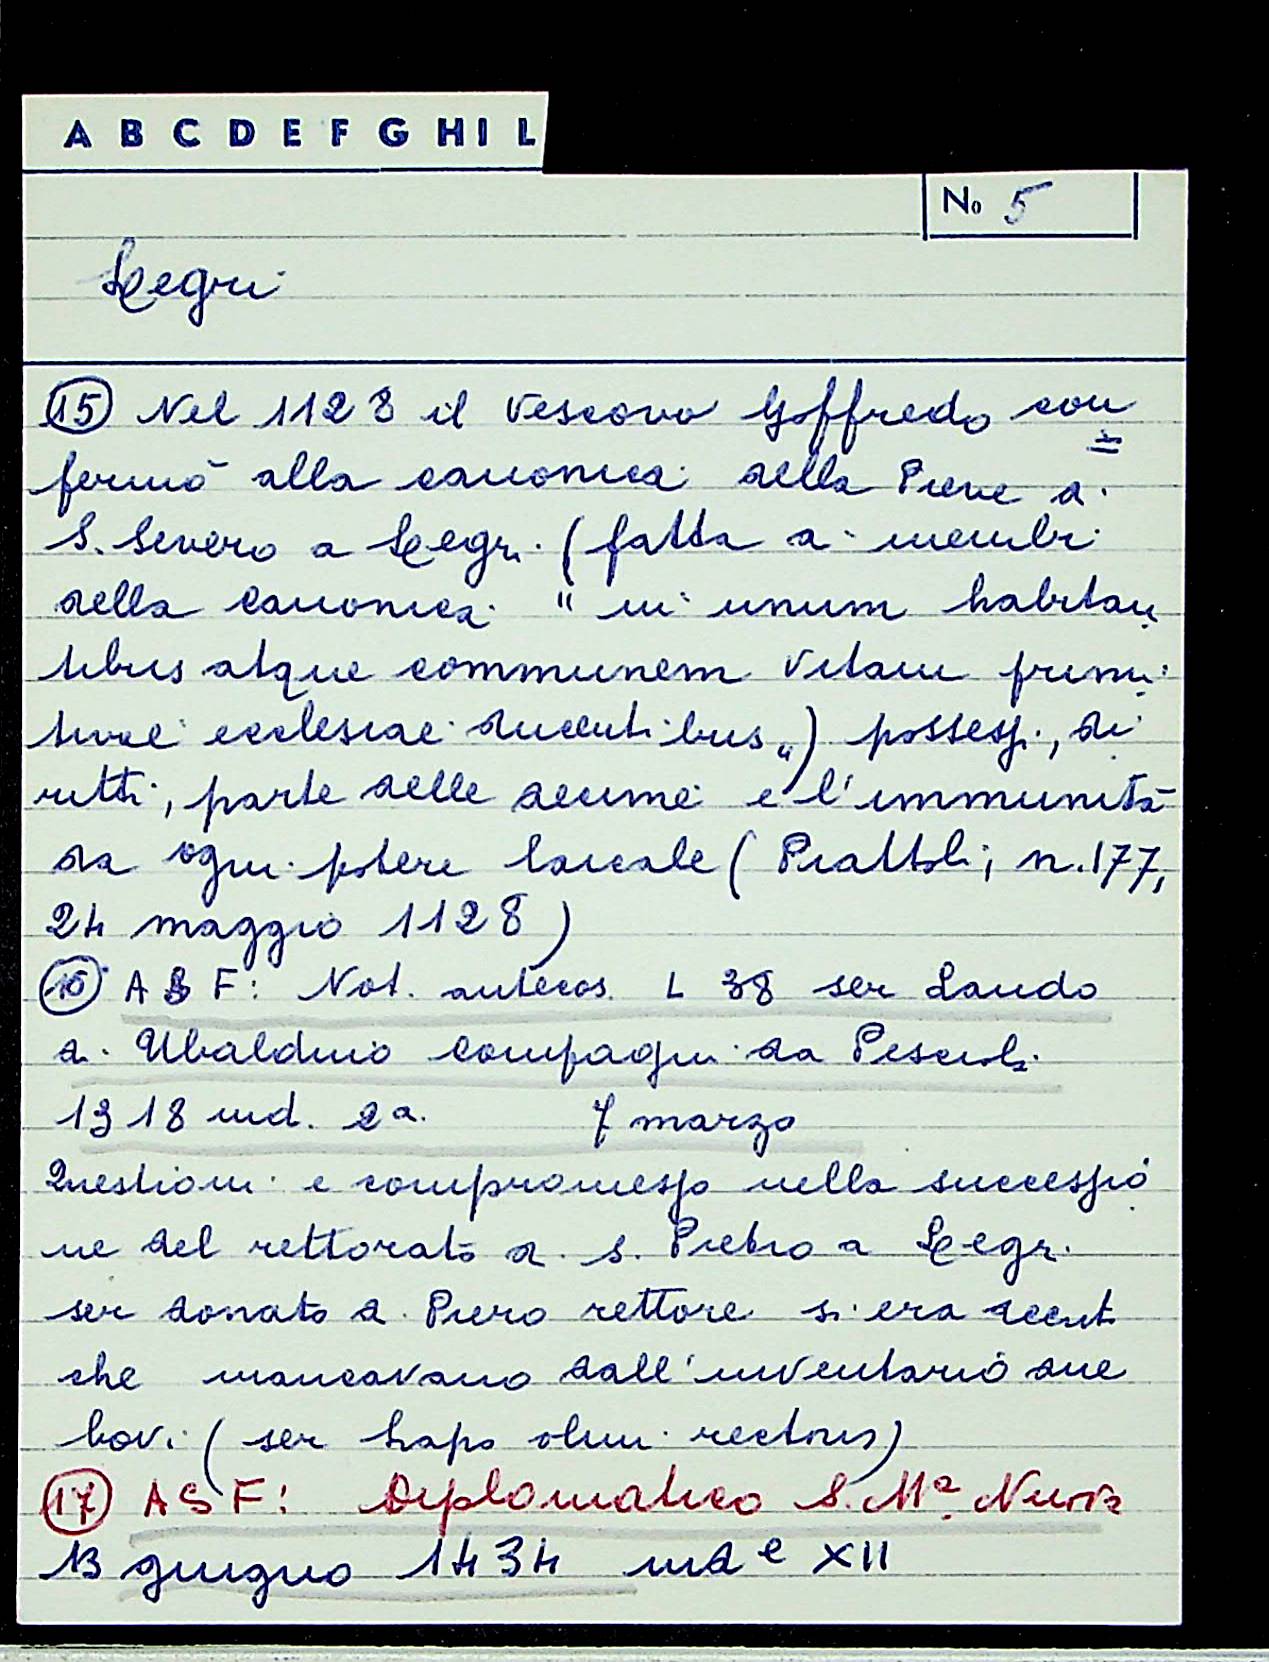 A B C D E F G H I L
No 5
Legri
15 Nel 1128 il vescovo Goffredo con
=
fermò alla canonica della Pieve di
S. Severo a Legri (fatta di membri
della canonica " in unum habitan
tibus atque communem vitam primi
tivae ecclesiae ducentibus „) possessi, di
ritti, parte delle decime e l'immunità
da ogni potere laicale (Piattoli, n. 177,
24 maggio 1128)
16 A S F: Not. antecos. L 38 ser Lando
di Ubaldino compagni da Pesciola
1318 ind. 2a. 7 marzo
Questioni e compromesso nella successio
ne del rettorato di S. Pietro a Legri
ser Donato di Piero rettore si era
che mancavano dall'inventario due
bovi (ser Lapo olim rectoris)
17 A S F: Diplomatico S. Ma. Nuova
13 giugno 1434 inde XII